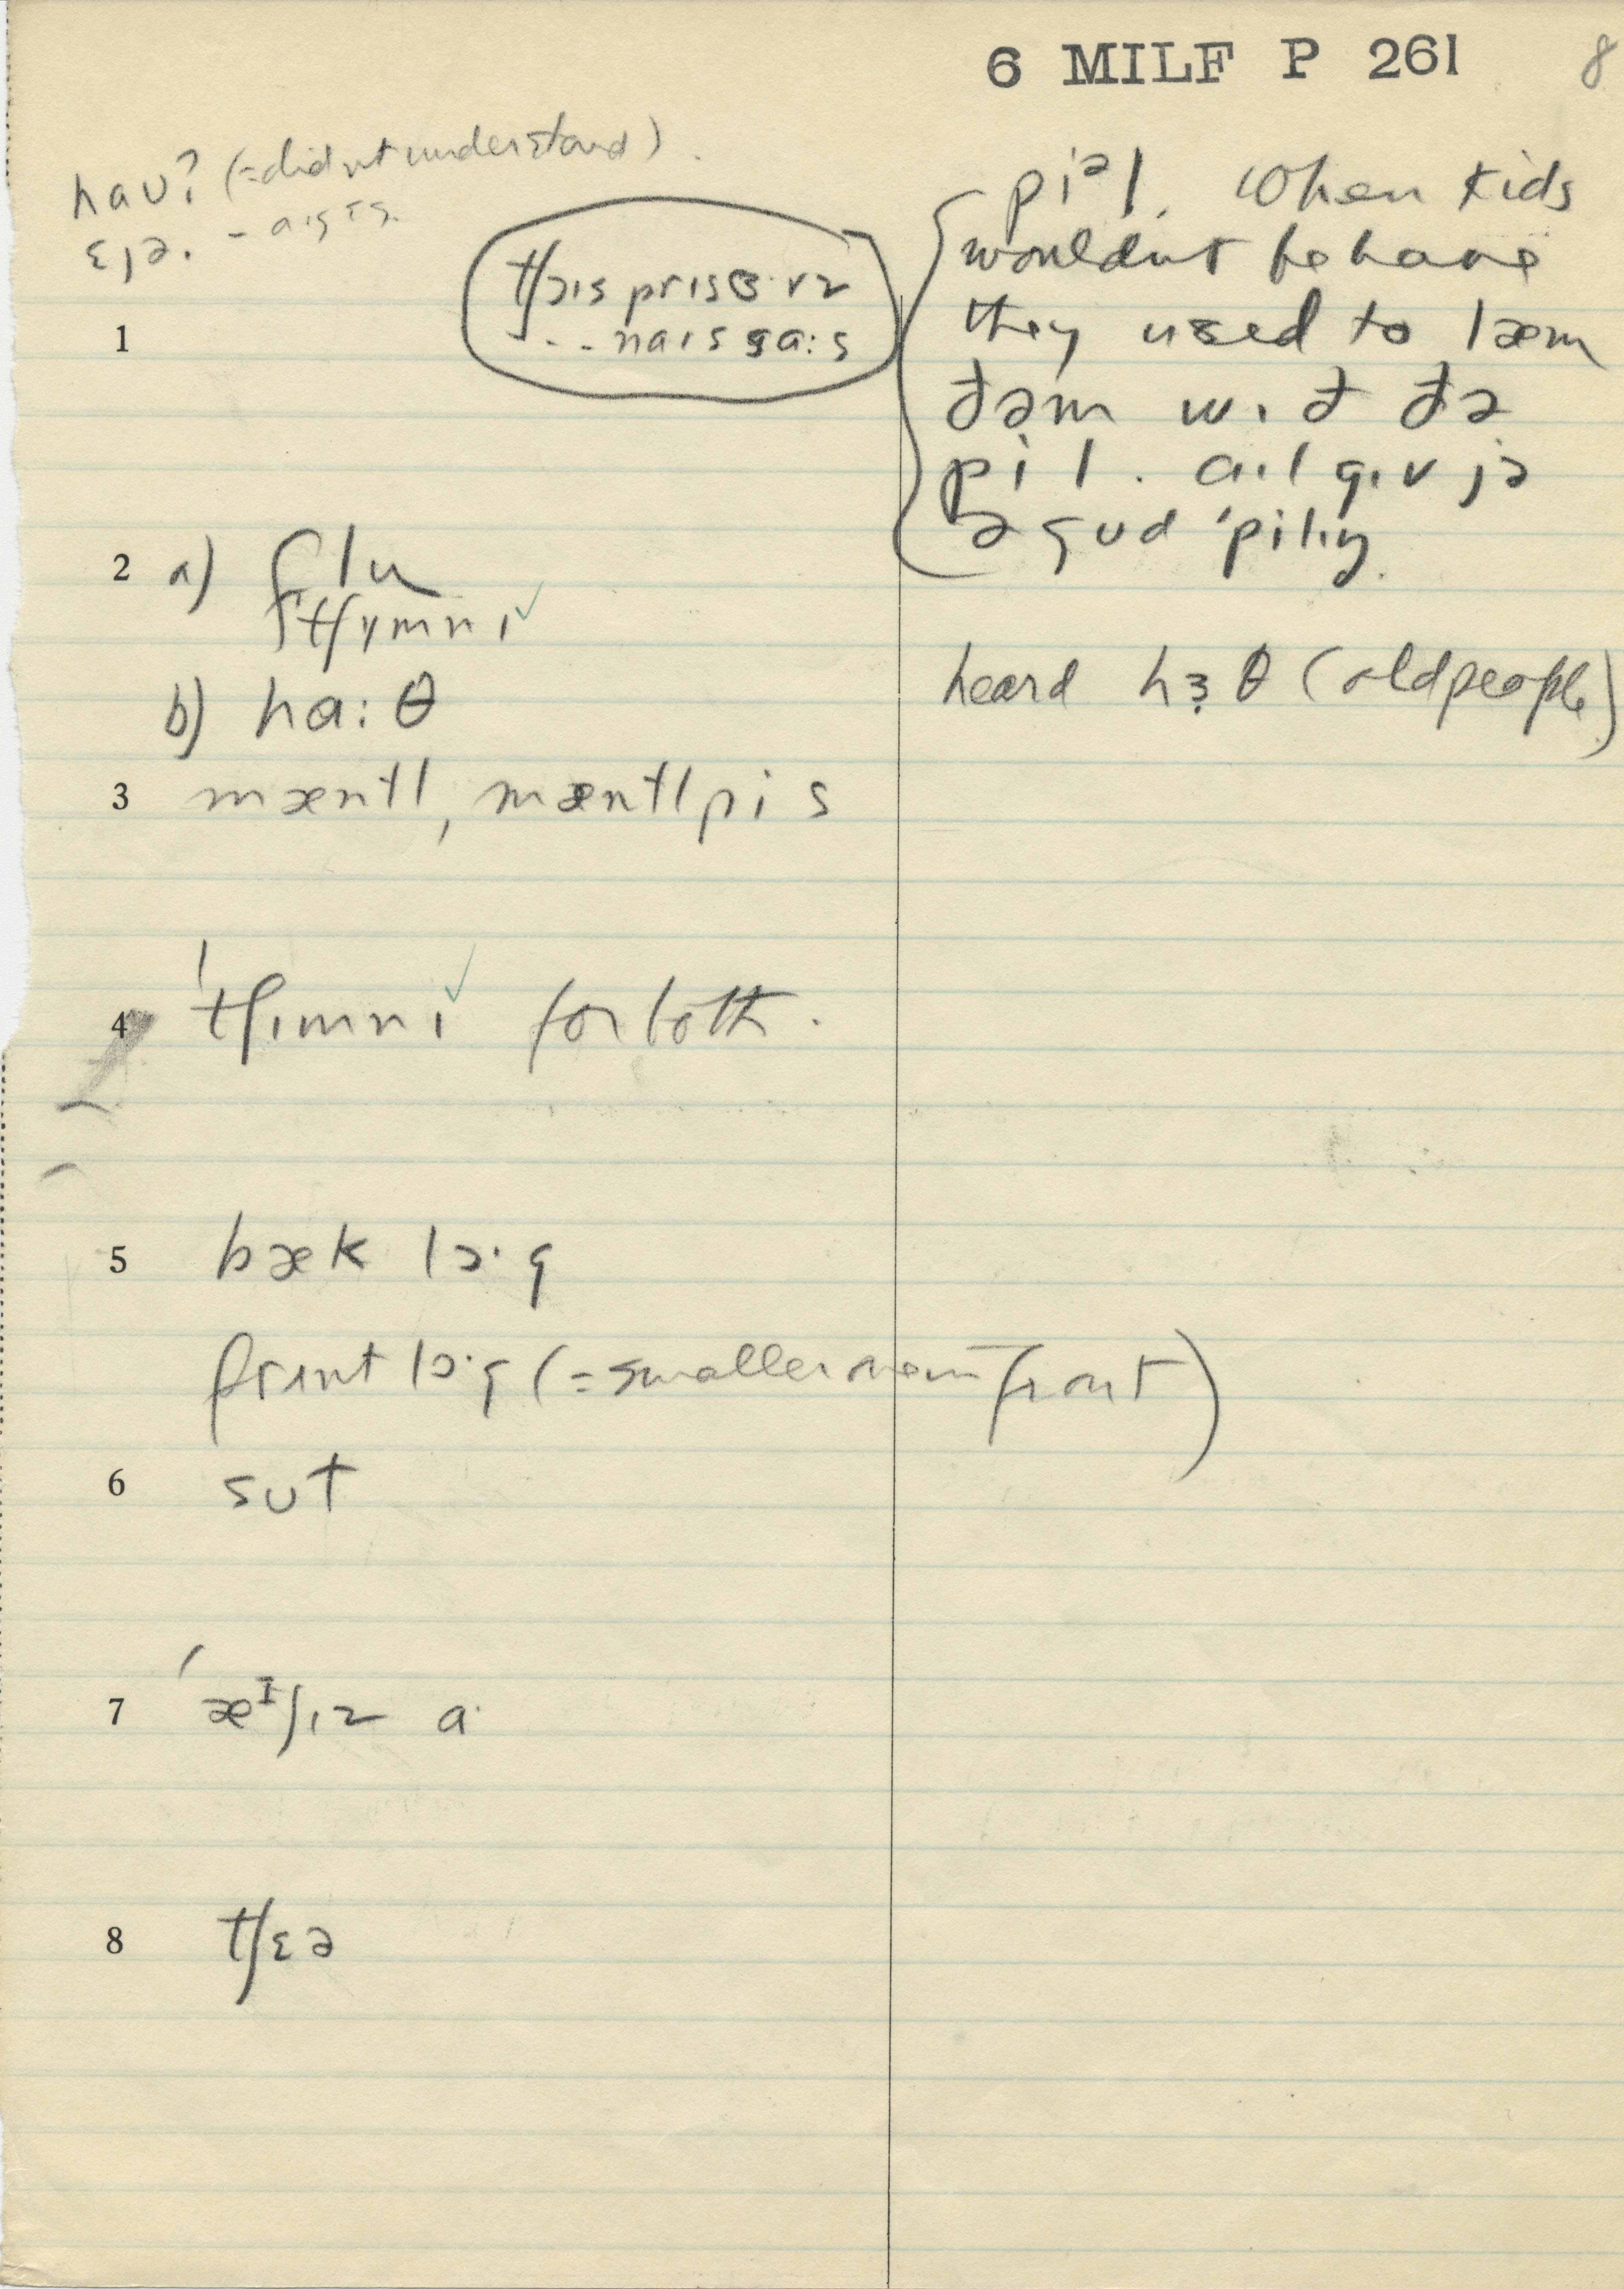 6 MILF P 261 8
haʊ? (=didnt understand).
ɛjə.
tʃɔɪs prɪsɜ·vz
... naɪs ga:s
1
piᵊl. When kids
wouldnt behave
they used to læm
ðəm wɪð ðə
pil. a·l gɪv jə
ə gʊd 'pilɪŋ.
2 a) flu
tʃɪmnɪ ✓
b) ha:θ
heard hɜθ (old people)
3 mæntl, mæntlpis
4 'tʃɪmnɪ ✓ for both.
5 bæk lɔ·g
frɪnt lɔ·g (=smaller one in front)
6 sʊt
7 'æᴵʃɪz a·
8 tʃɛə